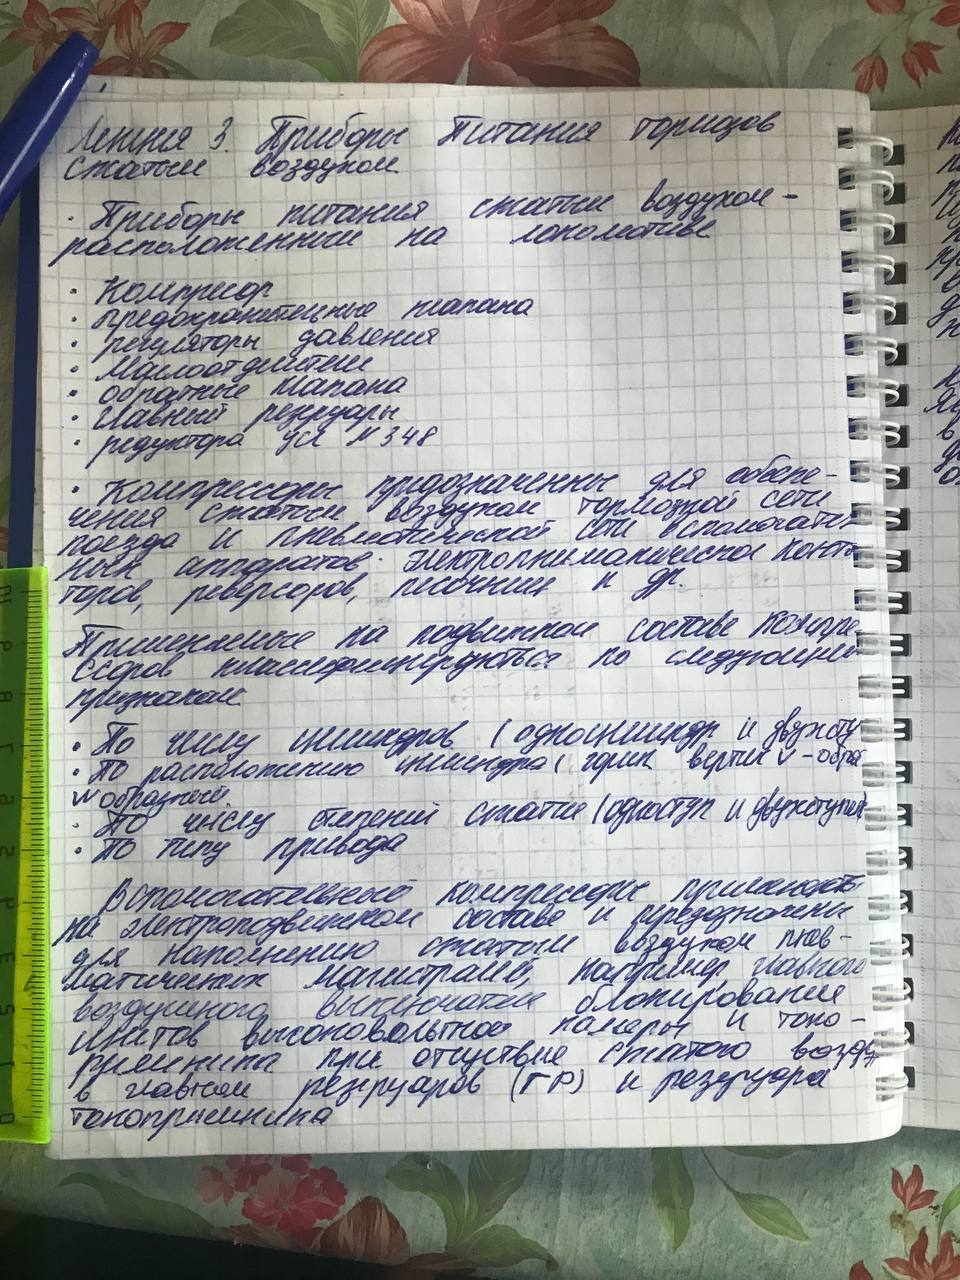 Лекция 3. Приборы Питания тормозов
сжатым воздухом.
· Приборы питания сжатым воздухом -
расположенный на локомативе
· Компресор
· предохранительные клапана
· регуляторы давления
· Маслоотделители
· обратные клапана
· Главный резервуары
· редуктора усл №348
· Компрессоры предозначенны для обеспе-
чения сжатым воздухом тормозной сети
поезда и пневматической сети вспомогател
ных аппаратов: электропниманических конта
торов, реверсоров, песочниц и др.
Применяемые на подвижном составе Компре
ссоров классефицируються по следующим
признакам.
· По числу цилиндров (одноцилиндр и двухсту
· По расположению цилиндра (гориз вертик V - обра
W образный
· По числу степеней сжатие (одноступ и двухступен
· По типу привода
Вспомогательный компрессоры применяють
на электроподвижном составе и
для наполнению сжатым воздухом пнев-
матических магистралей, например главного
воздушного выключателя блокирование
щитов высоковольтной камеры и токо-
приемника при отсуствие сжатого возду
в главном резервуаров (ГР) и резервуара
токоприемника